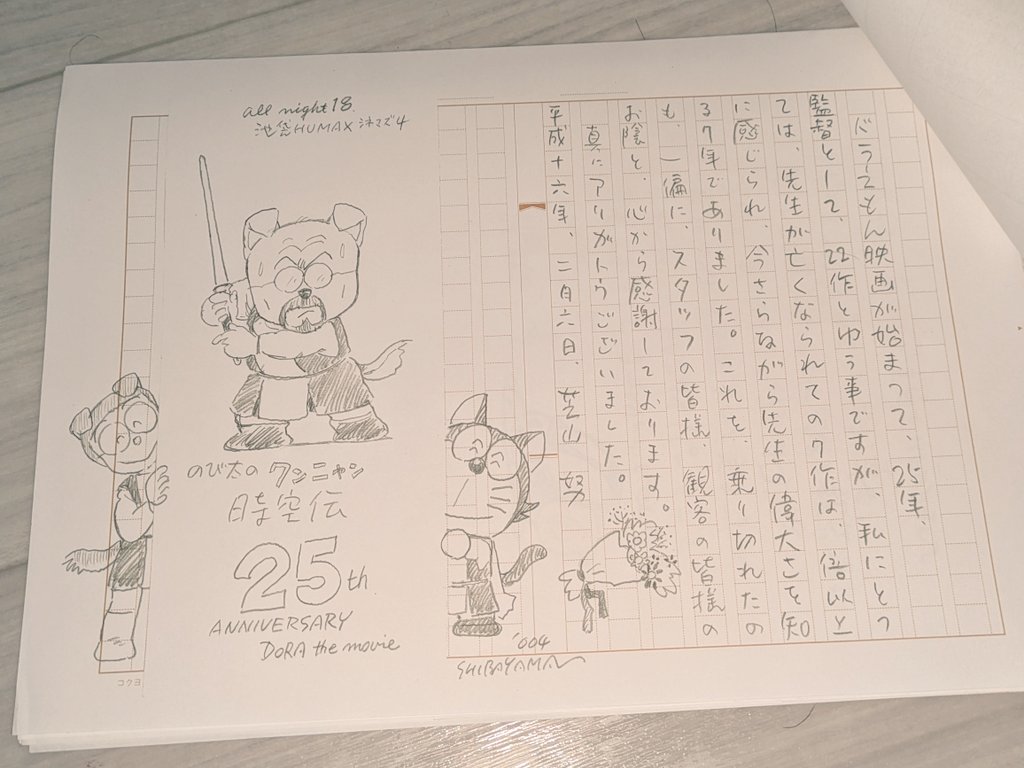 ドラえもん映画が始まって、25年、
監督として、22作とゆう事ですが、私にとっ
ては、先生が亡くなられての7作は、倍以上
に感じられ、今さらながら先生の偉大さを知
る7年でありました。これを、乗り切れたの
も、一偏に、スタッフの皆様、観客の皆様の
お陰と、心から感謝しております。
真にアリガトウございました。
平成十六年、二月六日、芝山 努
'004
SHIBAYAMA
all night 18
池袋HUMAXシネマズ4
のび太のワンニャン
時空伝
25th
ANNIVERSARY
DORA the movie
コクヨ